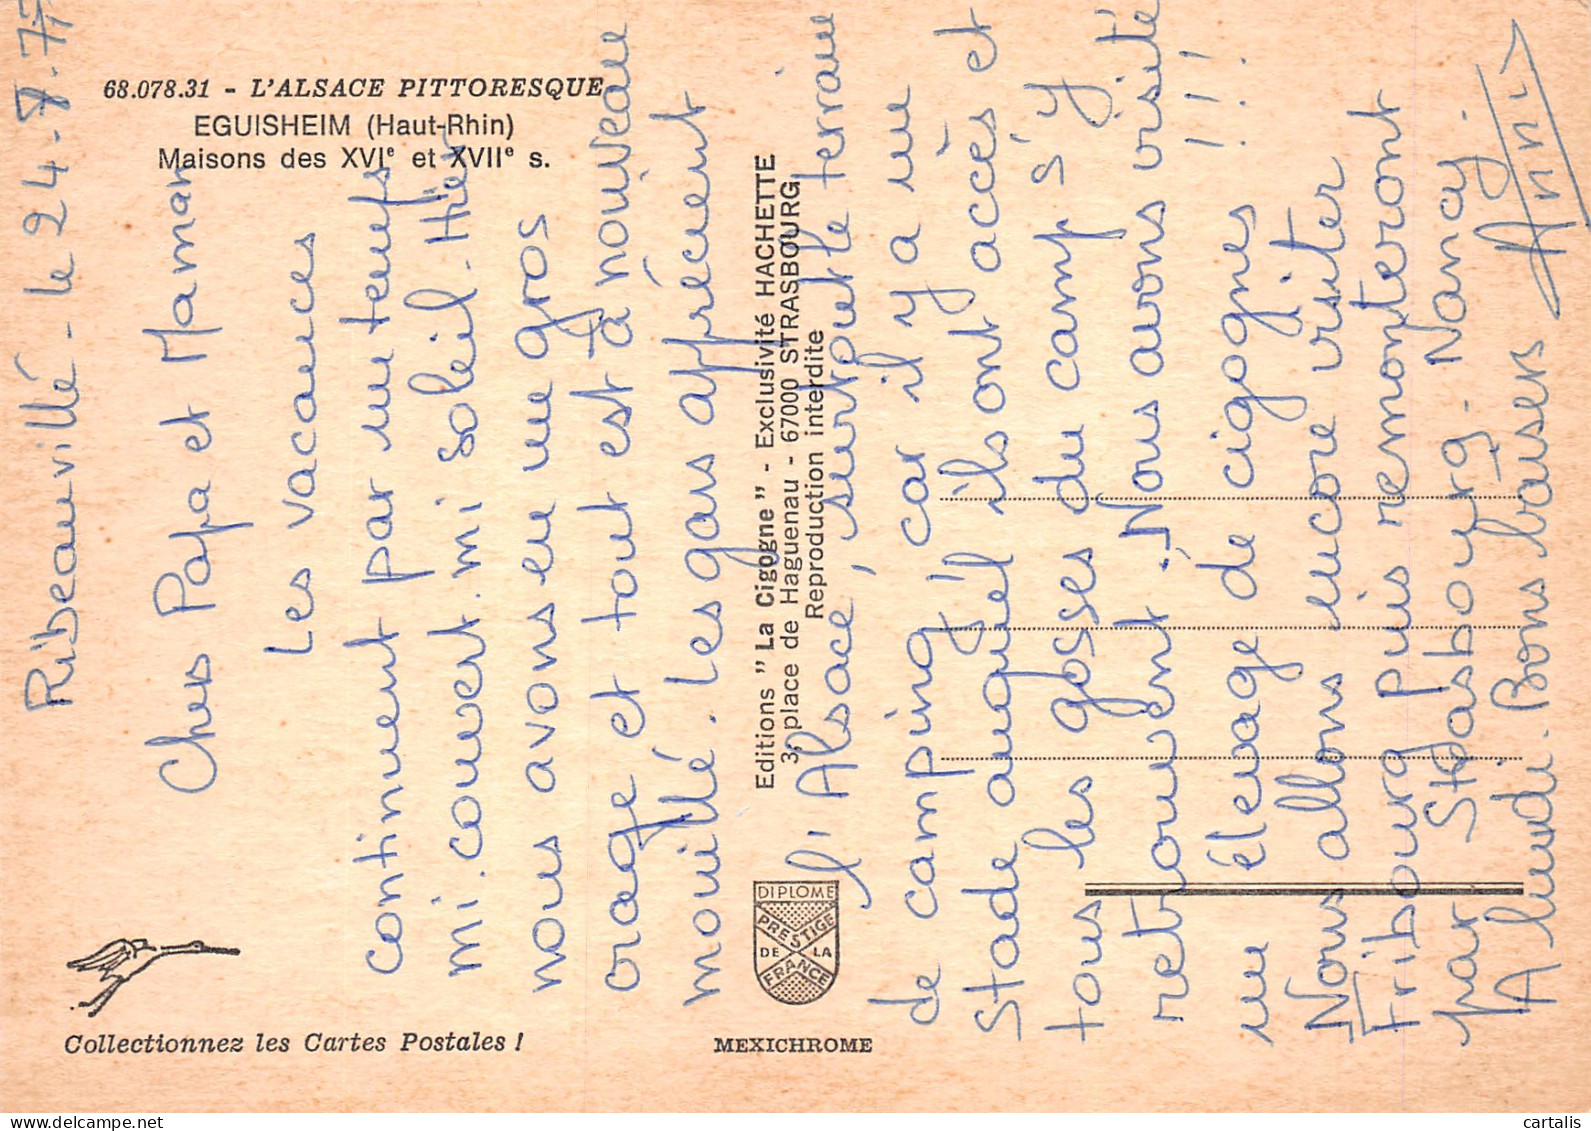 68.078.31 - L'ALSACE PITTORESQUE
EGUISHEIM (Haut-Rhin)
Maisons des XVIe et XVIIe s.
Ribeauvillé - le 24-8-77
Chers Papa et Maman
Les vacances
continuent par un temps
mi. couvert. mi soleil. Hier
nous avons eu un gros
orage et tout est à nouveau
mouillé. Les gars apprécient
l'Alsace, surtout le terrain
de camping car il y a un
Stade auquel ils ont accès et
tous les gosses du camp s'y
retrouvent. Nous avons visité
un élevage de cigognes !!!
Nous allons encore visiter
Fribourg puis remonteront
par Strasbourg - Nancy.
A lundi. Bons baisers
Anni
Editions "La Cigogne" - Exclusivité HACHETTE
3, place de Haguenau - 67000 STRASBOURG
Reproduction interdite
DIPLOME
PRESTIGE
DE LA
FRANCE
Collectionnez les Cartes Postales !
MEXICHROME
delcampe.net
cartalis